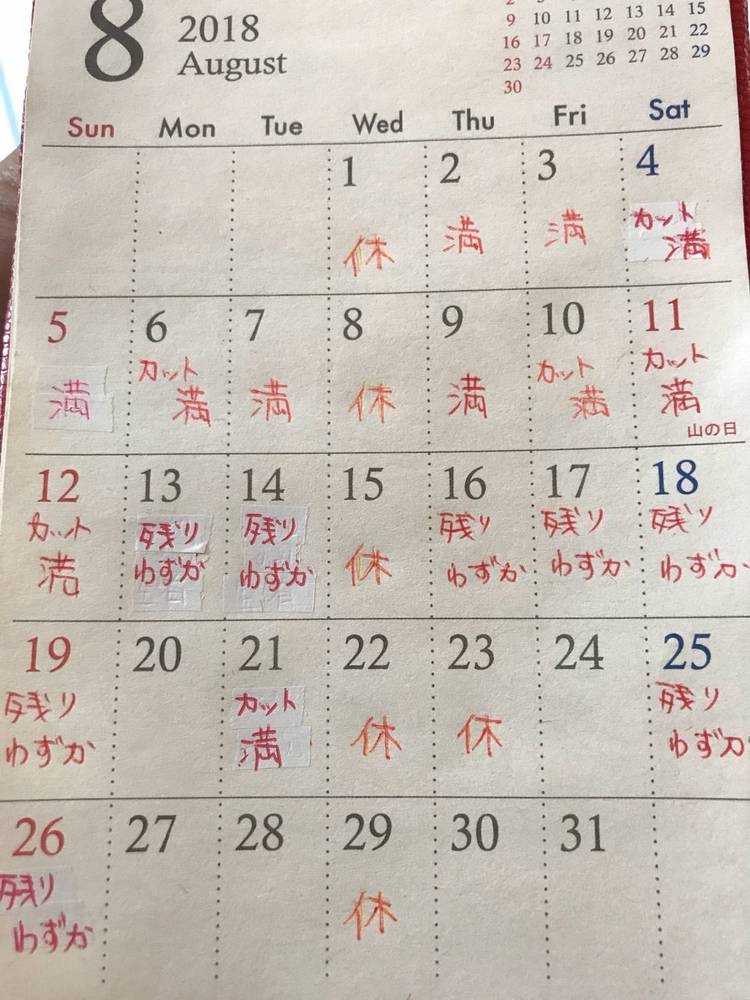 8
2018
August
9 10 11 12 13 14 15
16 17 18 19 20 21 22
23 24 25 26 27 28 29
30
Sun Mon Tue Wed Thu Fri Sat
1 2 3 4
休 満 満 カット
満
5 6 7 8 9 10 11
満 カット 満 休 満 カット カット
満 満 満
山の日
12 13 14 15 16 17 18
カット 残り 残り 休 残り 残り 残り
満 わずか わずか わずか わずか わずか
19 20 21 22 23 24 25
残り カット 休 休 残り
わずか 満 わずか
26 27 28 29 30 31
残り 休
わずか